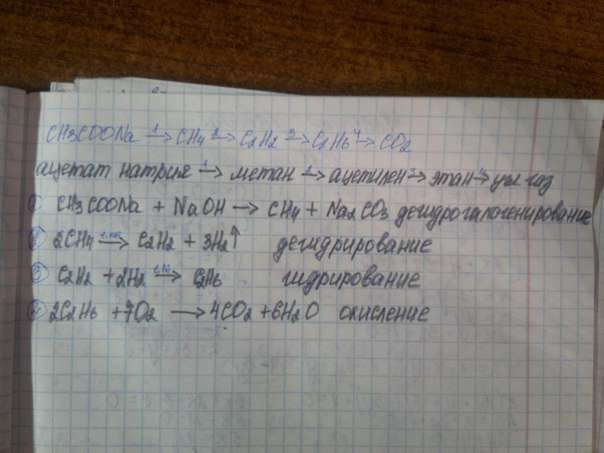 CH3COONa 1→ CH4 2→ C2H2 3→ C2H6 4→ CO2
ацетат натрия 1→ метан 2→ ацетилен 3→ этан 4→ угл газ
① CH3COONa + NaOH → CH4 + Na2CO3 дегидрогалогенирование
② 2CH4 → C2H2 + 3H2↑ дегидрирование
③ C2H2 + 2H2 → C2H6 гидрирование
④ 2C2H6 + 7O2 → 4CO2 + 6H2O окисление